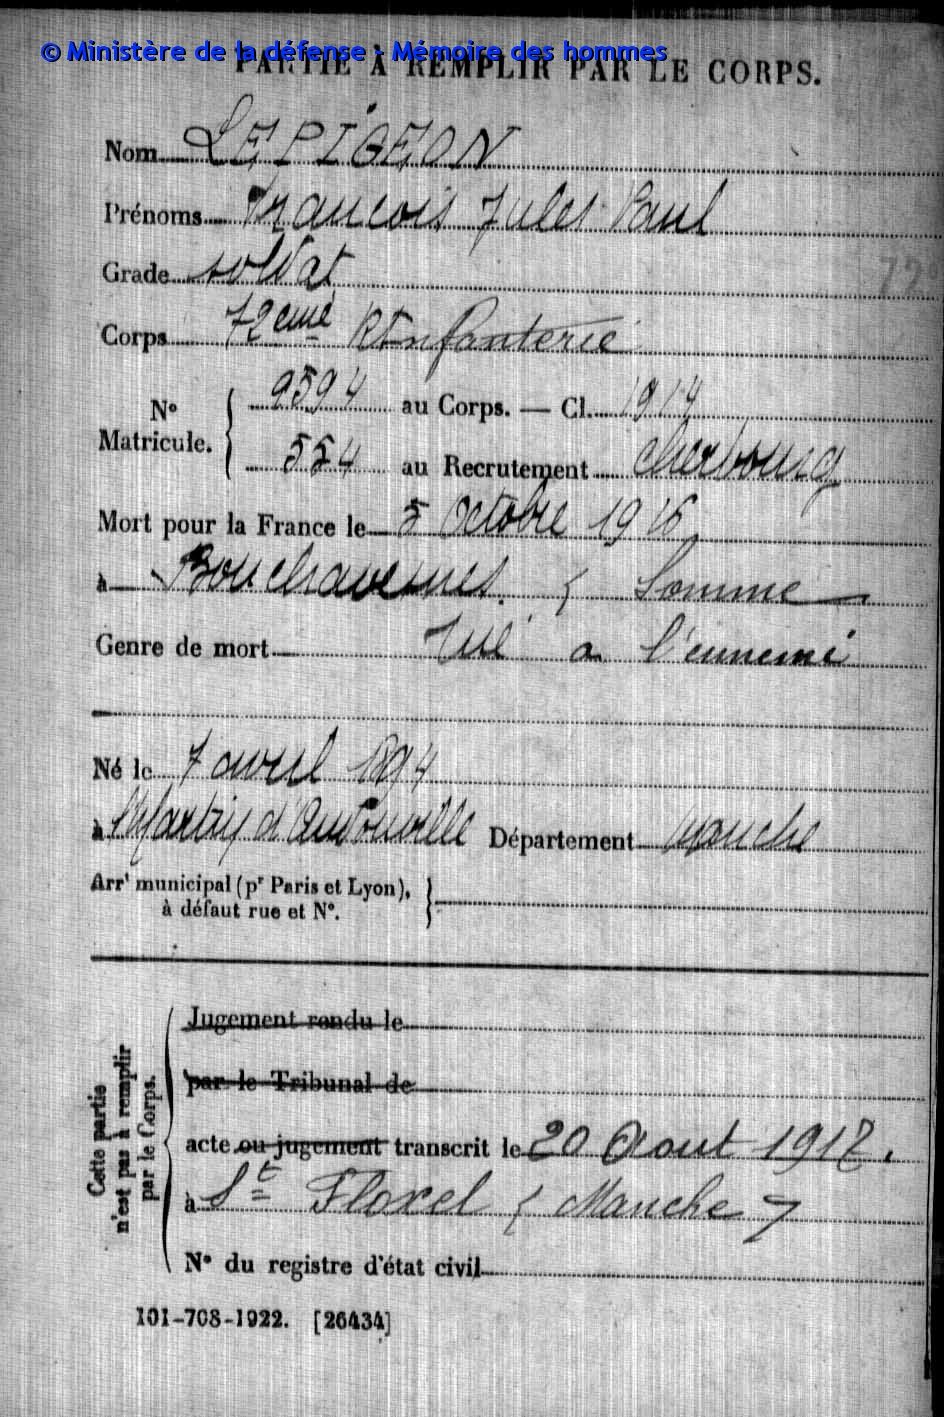 © Ministère de la défense - Mémoire des hommes
PARTIE À REMPLIR PAR LE CORPS.
Nom LEPIGEON
Prénoms François Jules Paul
Grade soldat
72e
Corps 72eme Rt Infanterie
N° Matricule. { 9594 au Corps. — Cl. 1914
554 au Recrutement Cherbourg
Mort pour la France le 5 Octobre 1916
à Bouchavesnes. ( Somme
Genre de mort Tué a l'ennemi
Né le 7 avril 1894
à St Martin d'Audouville Département Manche
Arrt municipal (pr Paris et Lyon), à défaut rue et N°. }
Cette partie n'est pas à remplir par le Corps.
Jugement rendu le
par le Tribunal de
acte ou jugement transcrit le 20 Aout 1917.
à St Floxel ( Manche )
N° du registre d'état civil
101-708-1922. [26434]